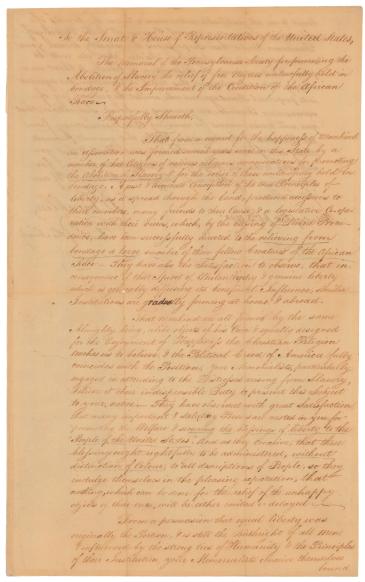 To the Senate & House of Representatives of the United States,
The Memorial of the Pennsylvania Society for promoting the
Abolition of Slavery, the relief of free Negroes unlawfully held in
bondage, & the Improvement of the Condition of the African
Races
Respectfully Sheweth,
That from a regard for the happiness of Mankind
an Association was formed several years since in this State by a
number of her Citizens of various religious denominations for promoting
the Abolition of Slavery & for the relief of those unlawfully held in
bondage. A just & accurate Conception of the true Principles of
liberty, as it spread through the land, produced accessions to
their numbers, many friends to their Cause, & a legislative Co-ope-
ration with their views, which, by the blessing of Divine Provi-
dence, have been successfully directed to the relieving from
bondage a large number of their fellow Creatures of the African
Race. They have also the Satisfaction to observe, that in
consequence of that Spirit of Philanthropy & genuine liberty
which is generally diffusing its beneficial Influence, similar
Institutions are gradually forming at home & abroad.
That mankind are all formed by the same
Almighty being, alike objects of his Care & equally designed
for the Enjoyment of Happiness the Christian Religion
teaches us to believe & the Political Creed of America fully
coincides with the Position. Your Memorialists, particularly
engaged in attending to the Distresses arising from Slavery,
believe it their indispensible Duty to present this Subject
to your notice. They have observed with great Satisfaction
that many important & salutary Powers are vested in you for
promoting the Welfare & securing the blessings of liberty to the
People of the United States. And as they conceive, that these
blessings ought rightfully to be administered, without
distinction of Colour, to all descriptions of People, so they
indulge themselves in the pleasing expectation, that
nothing, which can be done for the relief of the unhappy
objects of their care, will be either omitted or delayed.
From a persuasion that equal liberty was
originally the Portion, & is still the birthright of all men
& influenced by the strong ties of Humanity & the Principles
of their Institution, your Memorialists conceive themselves
bound